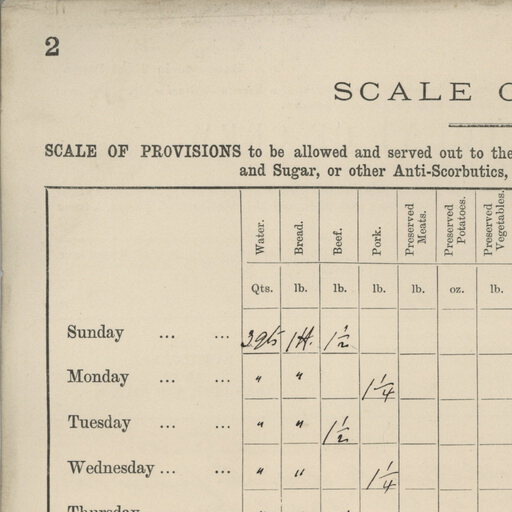 2
SCALE O
SCALE OF PROVISIONS to be allowed and served out to the
and Sugar, or other Anti-Scorbutics,
Water. Bread. Beef. Pork. Preserved Meats. Preserved Potatoes. Preserved Vegetables.
Qts. lb. lb. lb. lb. oz. lb.
Sunday ... ... 3 qts 1 lb. 1 1/2
Monday ... ... " " 1 1/4
Tuesday ... ... " " 1 1/2
Wednesday ... ... " " 1 1/4
Thursday